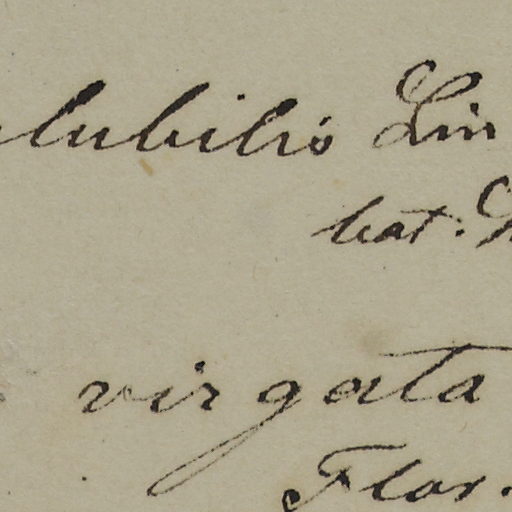 lubilis Lin
hat.
virgata
Flor.